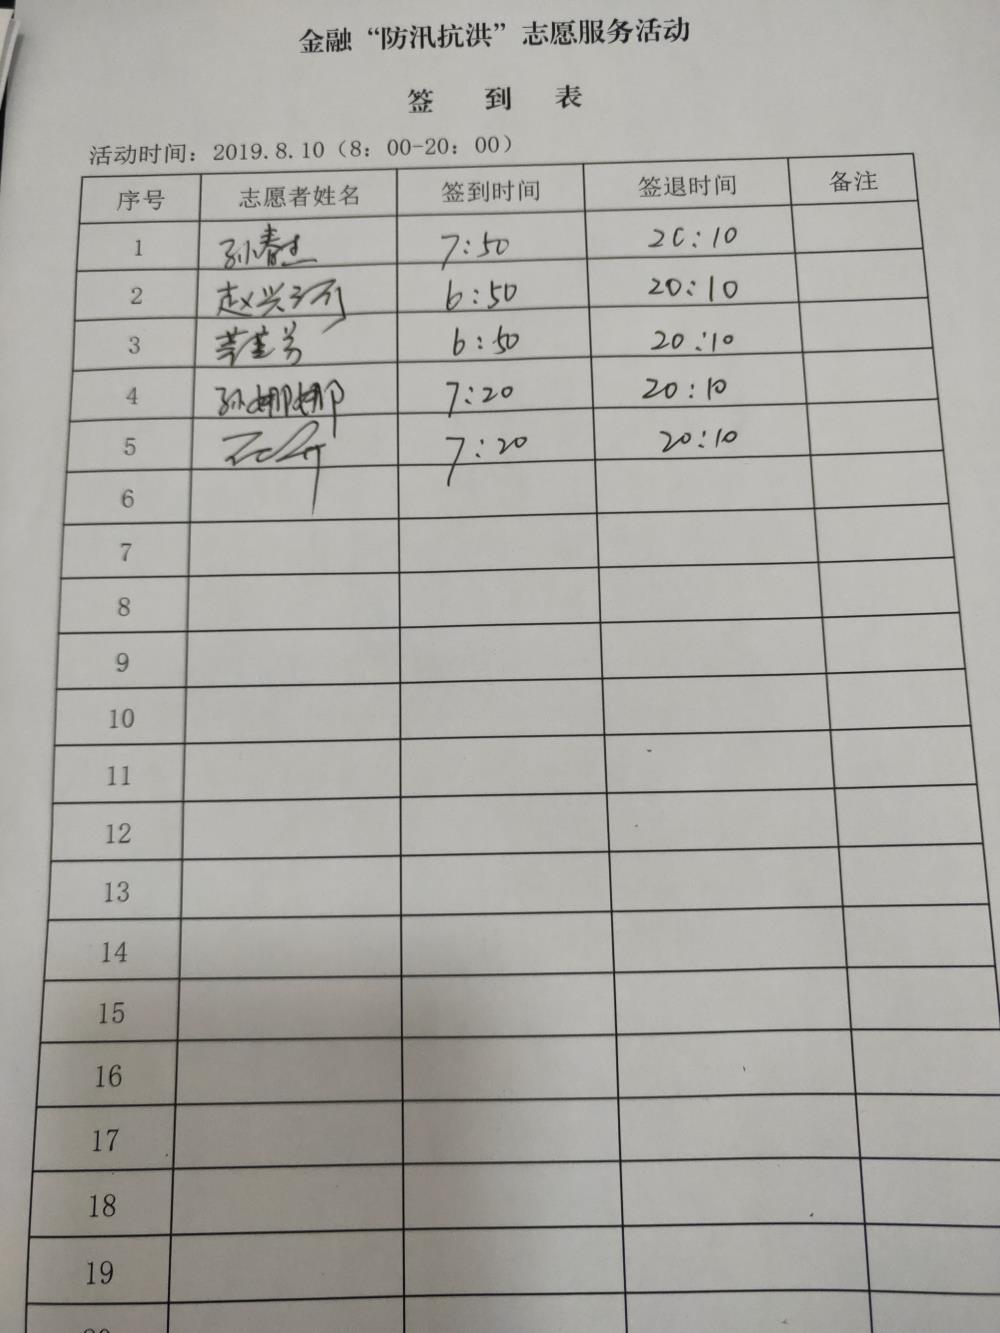 金融“防汛抗洪”志愿服务活动
签 到 表
活动时间：2019.8.10（8：00-20：00）
序号 志愿者姓名 签到时间 签退时间 备注
1 孙春杰 7:50 20:10
2 赵兴 6:50 20:10
3 6:50 20:10
4 孙娜娜 7:20 20:10
5 7:20 20:10
6
7
8
9
10
11
12
13
14
15
16
17
18
19